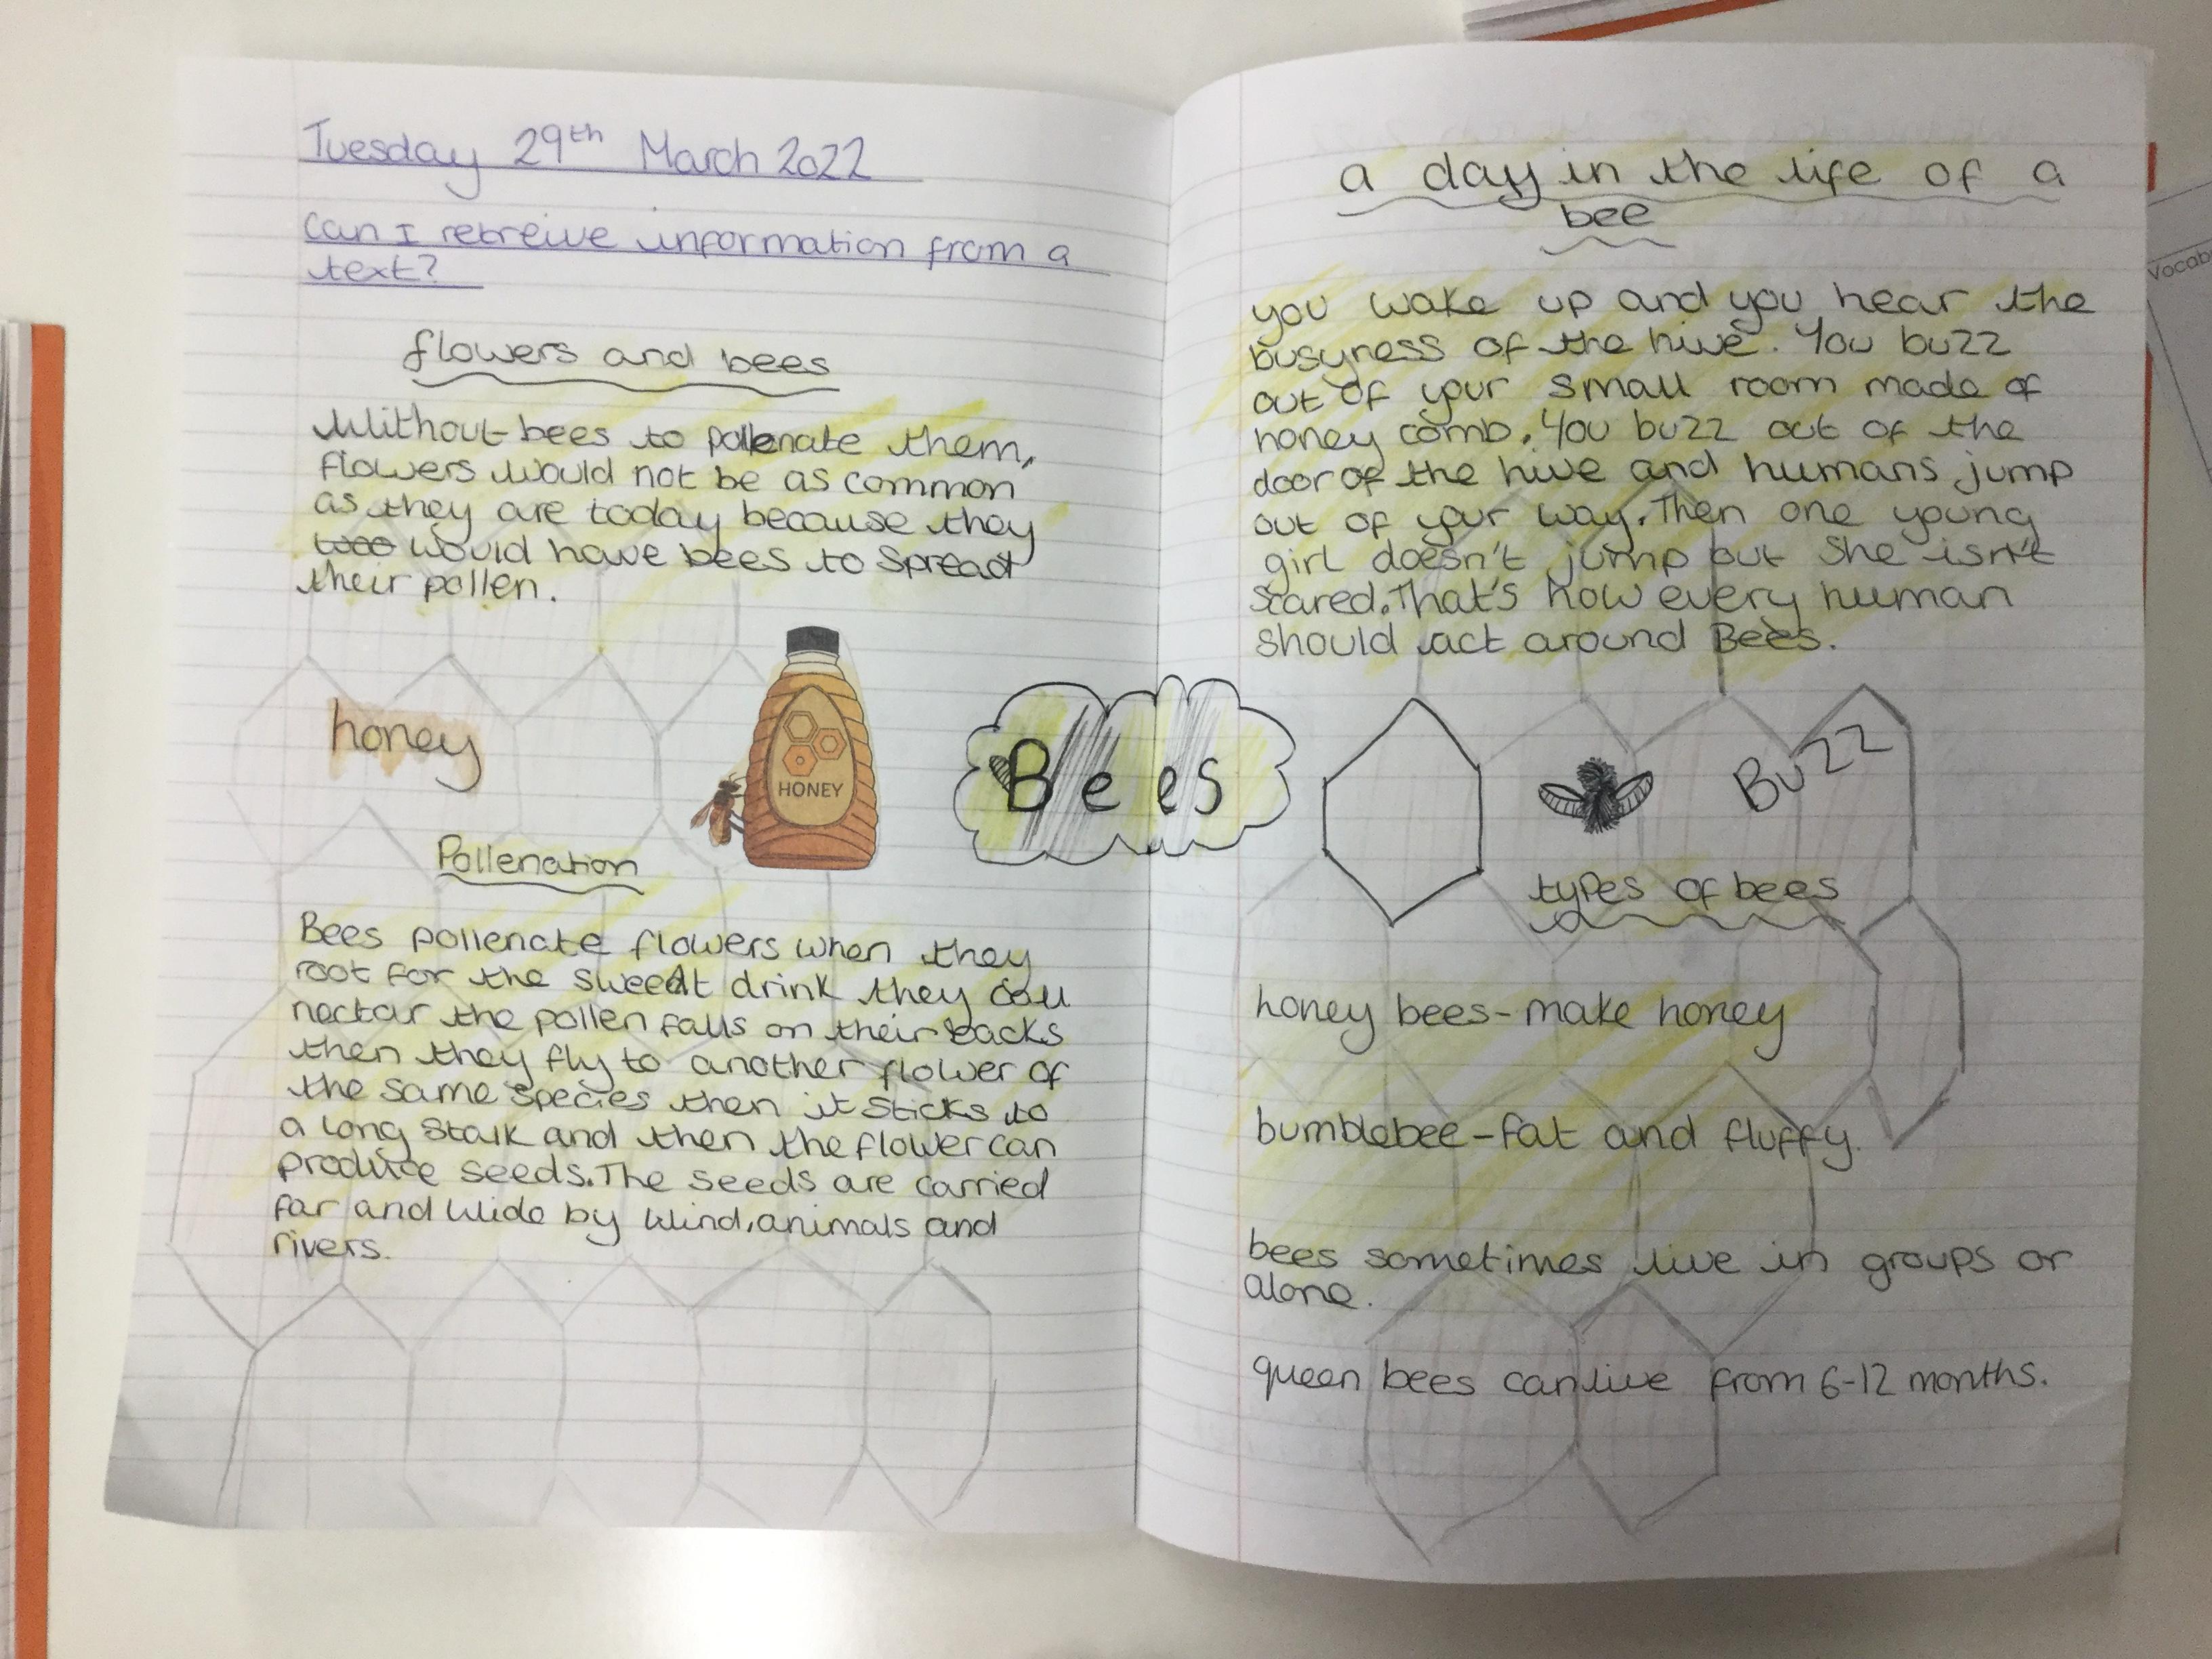 Tuesday 29th March 2022
Can I retreive information from a
text?
flowers and bees
Without bees to pollenate them,
flowers would not be as common
as they are today because they
would have bees to spread
their pollen.
honey
HONEY
Pollenation
Bees pollenate flowers when they
root for the sweet drink they call
nectar the pollen falls on their backs
then they fly to another flower of
the same species then it sticks to
a long stalk and then the flower can
produce seeds. The seeds are carried
far and wide by wind, animals and
rivers.
Bees
a day in the life of a
bee
you wake up and you hear the
busyness of the hive. You buzz
out of your small room made of
honey comb. You buzz out of the
door of the hive and humans jump
out of your way. Then one young
girl doesn't jump out she isn't
scared. That's how every human
should act around Bees.
Buzz
types of bees
honey bees - make honey
bumblebee - fat and fluffy.
bees sometimes live in groups or
alone.
queen bees can live from 6-12 months.
Vocab